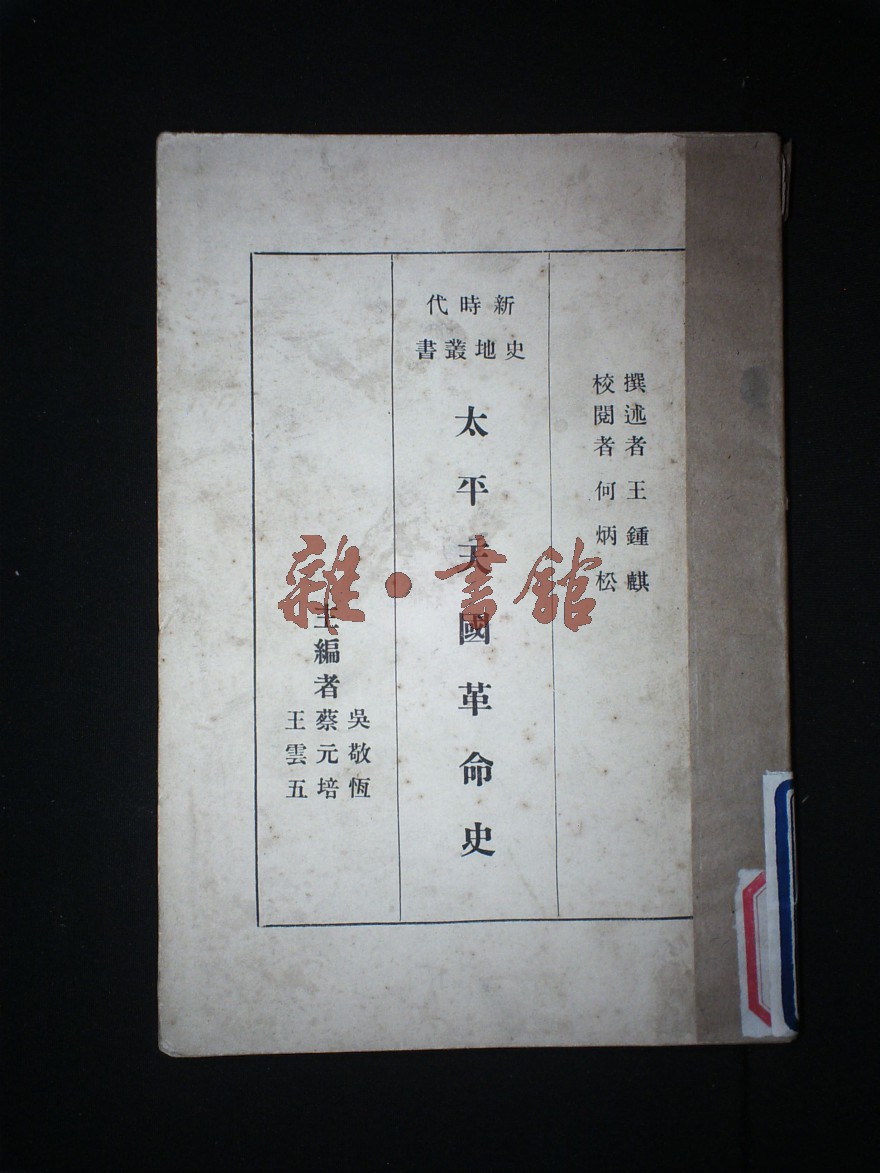 撰述者 王鍾麒
校閱者 何炳松
新時代
史地叢書
太平天國革命史
主編者
吳敬恆
蔡元培
王雲五
雜·書館